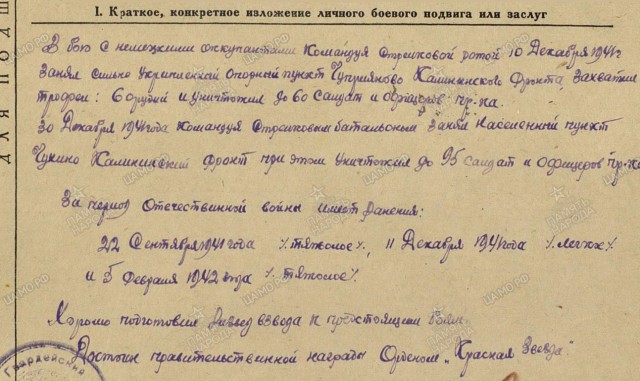 I. Краткое, конкретное изложение личного боевого подвига или заслуг
В бою с немецкими оккупантами командуя стрелковой ротой 10 Декабря 1941г
занял сильно укрепленный опорный пункт Чуприяново Калининского Фронта, захватил
трофеи: 6 орудий и уничтожил до 60 солдат и офицеров пр-ка.
30 Декабря 1941 года командуя стрелковым батальоном занял населенный пункт
Чукино Калининский фронт при этом уничтожил до 95 солдат и офицеров пр-ка
За период Отечественной войны имеет ранения:
22 Сентября 1941 года /тяжелое/, 11 Декабря 1941 года /легкое/
и 5 Февраля 1942 года /тяжелое/.
Хорошо подготовил взвода к предстоящим боям.
Достоин правительственной награды Орденом „Красная Звезда"
ДЛЯ ПОДШ
Гвардейский
ЦАМО.РФ
ПАМЯТЬ НАРОДА